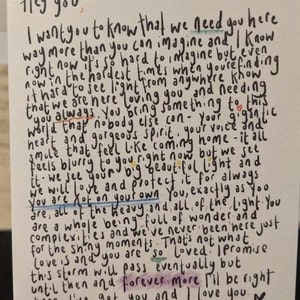 Hey you,
I want you to know that we need you here
way more than you can imagine and I know
right now it's so hard to imagine but even
now in the hardest times when you're finding
it hard to see light from anywhere know
that we are here loving you and needing
you always. You bring something to this
world that nobody else can - your gigantic
heart and gorgeous spirit, your voice and
smile that feel like coming home - it all
feels blurry to you right now but we see
it - we see your big beautiful light and
we will love and protect it for always
you are not on your own. You, exactly as you
are, all of the heavy and all of the light. You
are a whole being full of wonder and
complexities and we've never been here just
for the shiny moments. That's not what
love is and you are so loved. I promise
this storm will pass eventually but
until then and forever more I'll be right
here. I've got you and I love you.